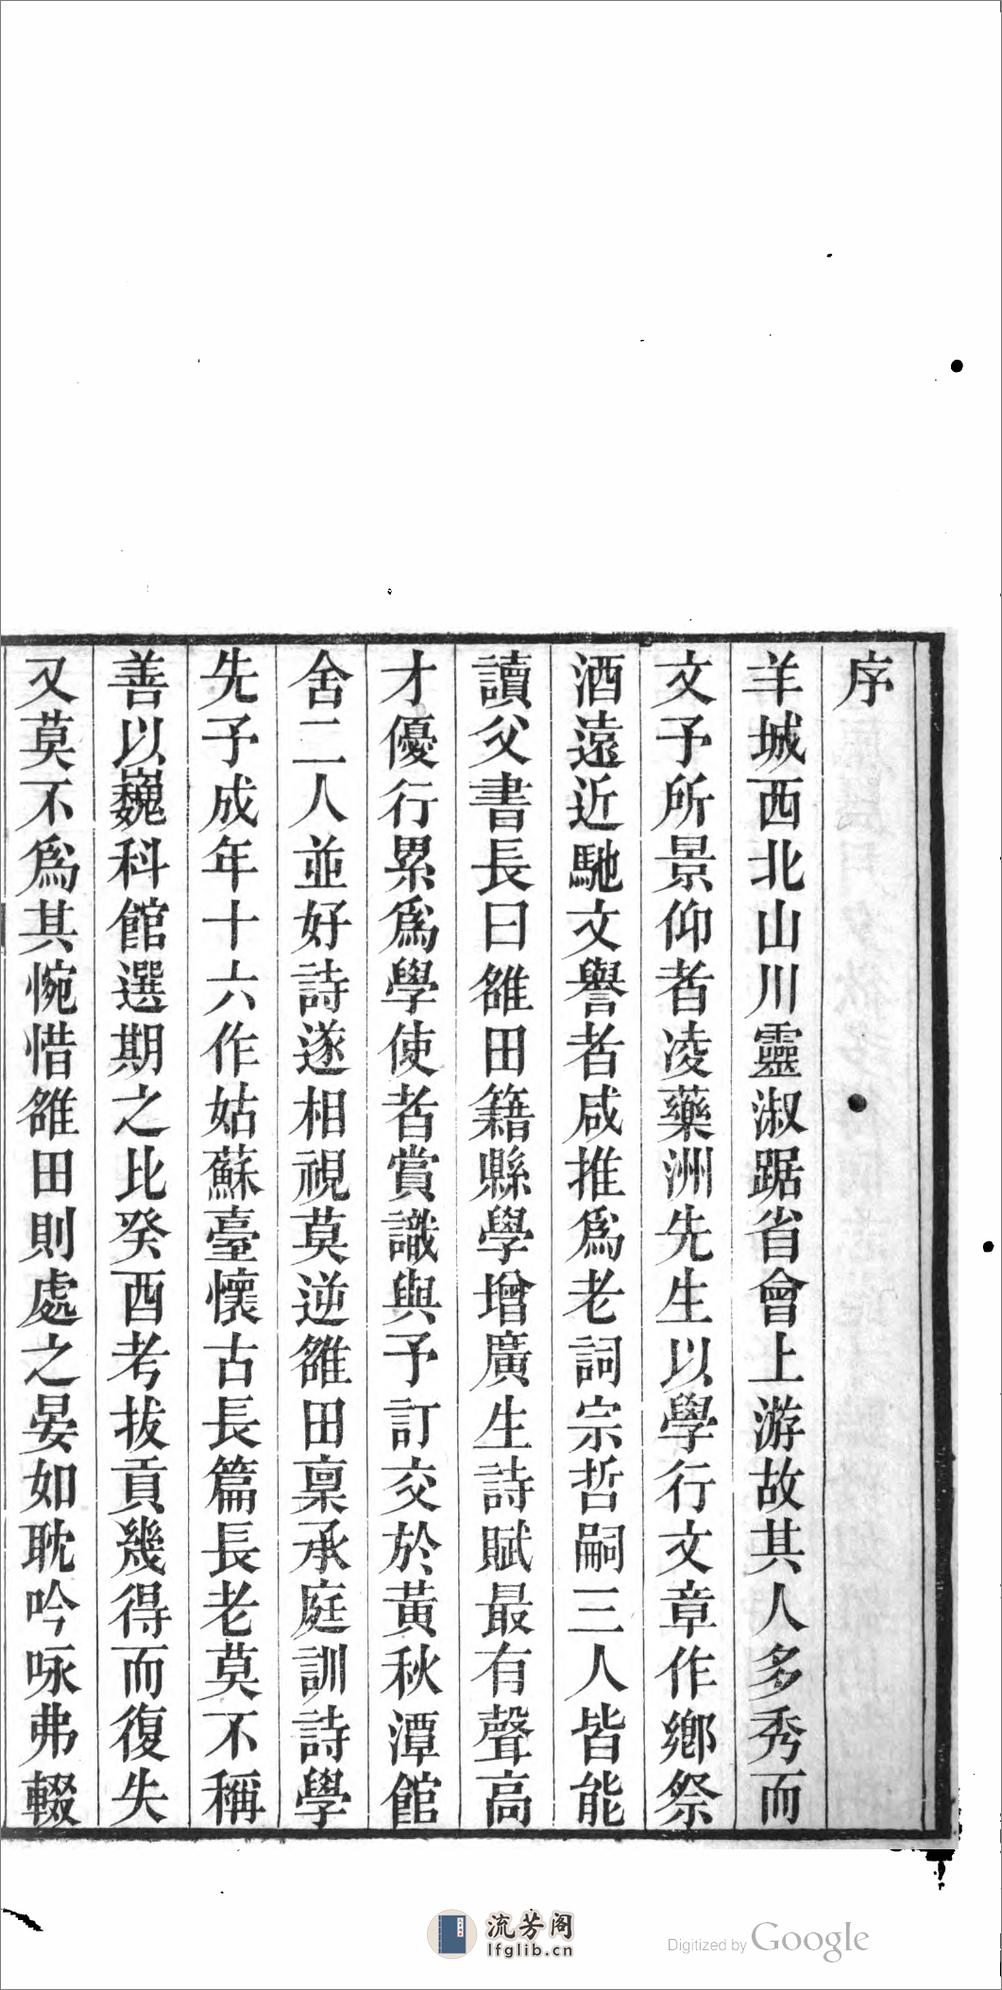 序
羊城西北山川靈淑踞省會上游故其人多秀而
文予所景仰者凌藥洲先生以學行文章作鄉祭
酒遠近馳文譽者咸推爲老詞宗哲嗣三人皆能
讀父書長曰雒田籍縣學增廣生詩賦最有聲高
才優行累爲學使者賞識與予訂交於黃秋潭館
舍二人並好詩遂相視莫逆雒田稟承庭訓詩學
先予成年十六作姑蘇臺懷古長篇長老莫不稱
善以巍科館選期之比癸酉考拔貢幾得而復失
又莫不爲其惋惜雒田則處之晏如耽吟咏弗輟
流芳阁
lfglib.cn
Digitized by Google